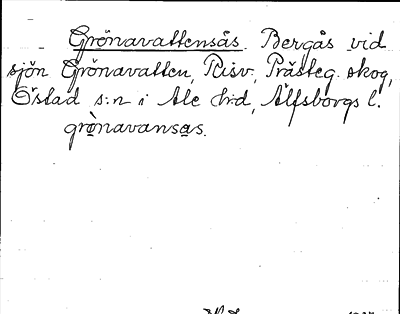 Grönavattensås. Bergås vid
sjön Grönavatten, Risv, Prästeg. skog,
Östad s:n i Ale h:d, Älfsborgs l.
grònavansas.